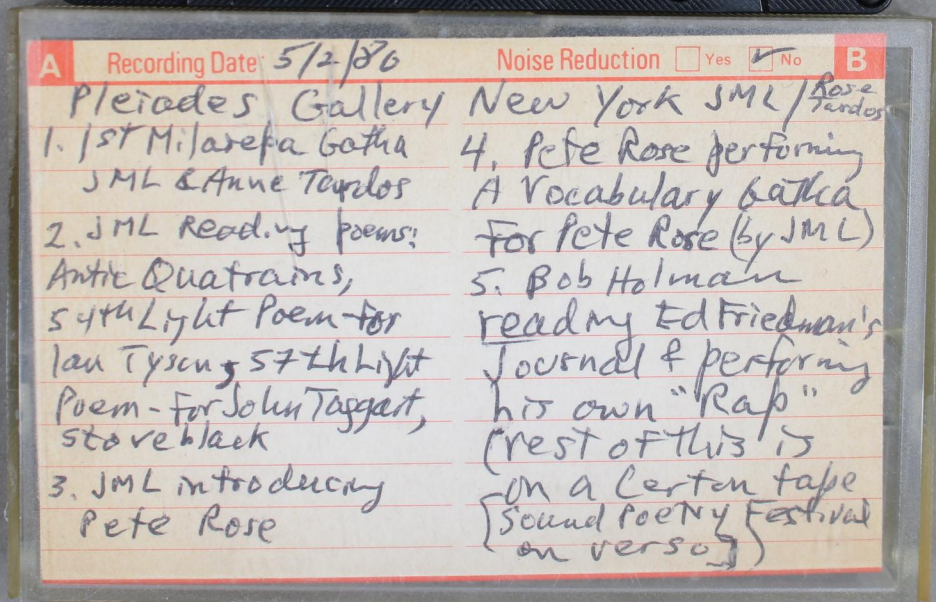 A Recording Date 5/2/80 Noise Reduction Yes ✓ No B
Pleiades Gallery New York JML / Rose Tardos
1. 1st Milarepa Gatha
JML & Anne Tardos
2. JML Reading poems:
Antic Quatrains,
54th Light Poem-For
Ian Tyson, 57th Light
Poem-For John Taggart,
stove black
3. JML introducing
Pete Rose
4. Pete Rose performing
A Vocabulary Gatha
For Pete Rose (by JML)
5. Bob Holman
reading Ed Friedman's
Journal & performing
his own "Rap"
(rest of this is
on a Certon tape
[Sound Poetry Festival
on verso])